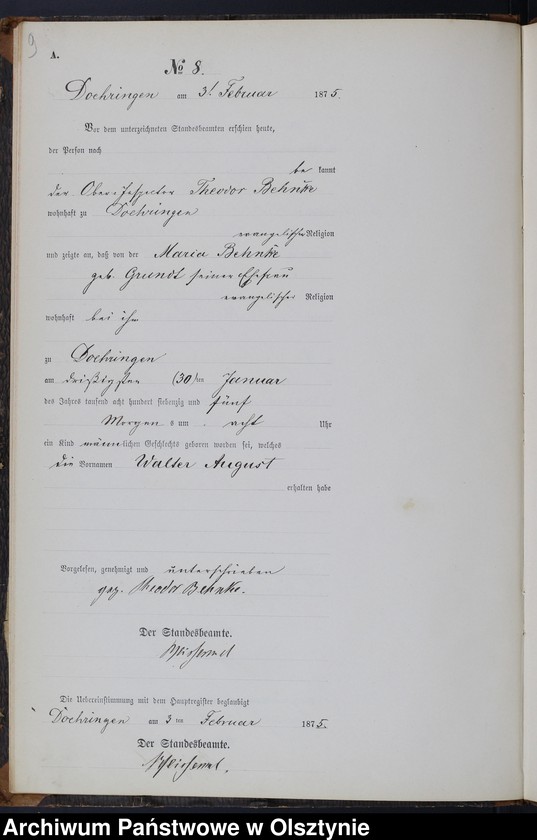 9
A.
No 8.
Doehringen am 3t Februar 1875.
Vor dem unterzeichneten Standesbeamten erschien heute,
der Person nach
be kannt
der Ober-Inspector Theodor Behnke
wohnhaft zu Doehringen
evangelischer Religion
und zeigte an, daß von der Maria Behnke
geb. Grundt seiner Ehefrau
evangelischer Religion
wohnhaft bei ihm
zu Doehringen
am dreißigsten (30) ten Januar
des Jahres tausend acht hundert siebenzig und fünf
Morgens um acht Uhr
ein Kind männlichen Geschlechts geboren worden sei, welches
die Vornamen Walter August
erhalten habe
Vorgelesen, genehmigt und unterschrieben
gez. Theodor Behnke.
Der Standesbeamte.
Die Uebereinstimmung mit dem Hauptregister beglaubigt
Doehringen am 3 ten Februar 1875.
Der Standesbeamte.
Archiwum Państwowe w Olsztynie